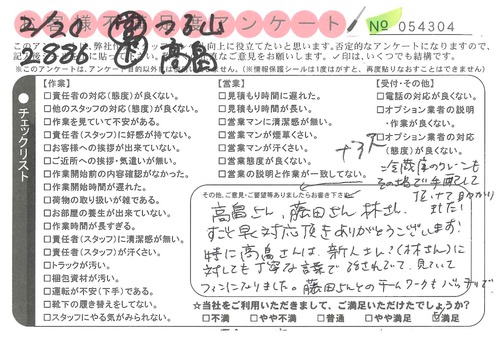 お客様不満足度アンケート
No 054304
2/20
2886
高畠
このアンケートは、弊社
向上に役立てたいと思います。否定的なアンケートになりますので、
なご意見をお願いします。✓印は、いくつでも結構です。
※このアンケートは、アンケート目的以外
(※情報保護シールは1度はがすと、再度貼りなおすことはできません)
チェックリスト
【作業】
□責任者の対応(態度)が良くない。
□他のスタッフの対応(態度)が良くない。
□作業を見ていて不安がある。
□責任者(スタッフ)に好感が持てない。
□お客様への挨拶が出来ていない。
□ご近所への挨拶・気遣いが無い。
□作業開始前の内容確認がなかった。
□作業開始時間が遅れた。
□荷物の取り扱いが雑である。
□お部屋の養生が出来ていない。
□作業時間が長すぎる。
□責任者(スタッフ)に清潔感が無い。
□責任者(スタッフ)が汗くさい。
□トラックが汚い。
□梱包資材が汚い。
□運転が不安(下手)である。
□靴下の履き替えをしてない。
□スタッフにやる気がみられない。
【営業】
□見積もり時間に遅れた。
□見積もり時間が長い。
□営業マンに清潔感が無い。
□営業マンが煙草くさい。
□営業マンが汗くさい。
□営業態度が良くない。
□営業の説明と作業が一致してない。
【受付・その他】
□電話の対応が良くない。
□オプション業者の説明
・作業が良くない。
□オプション業者の対応
(態度)が良くない。
冷蔵庫のクレーンも
その場で手配して
頂けて助かり
ました!
その他、ご意見・ご要望等ありましたらお書き下さい。
高畠さん、藤田さん、林さん、
すごく早対応頂きありがとうございます!
特に高畠さんは、新人さん?(林さん)に
対しても丁寧な言葉で話されてて、見ていて
ファンになりました。藤田さんとのチームワークもバッチリで
☆当社をご利用いただきまして、ご満足いただけたでしょうか?
□不満 □やや不満 □普通 □やや満足 ☑満足